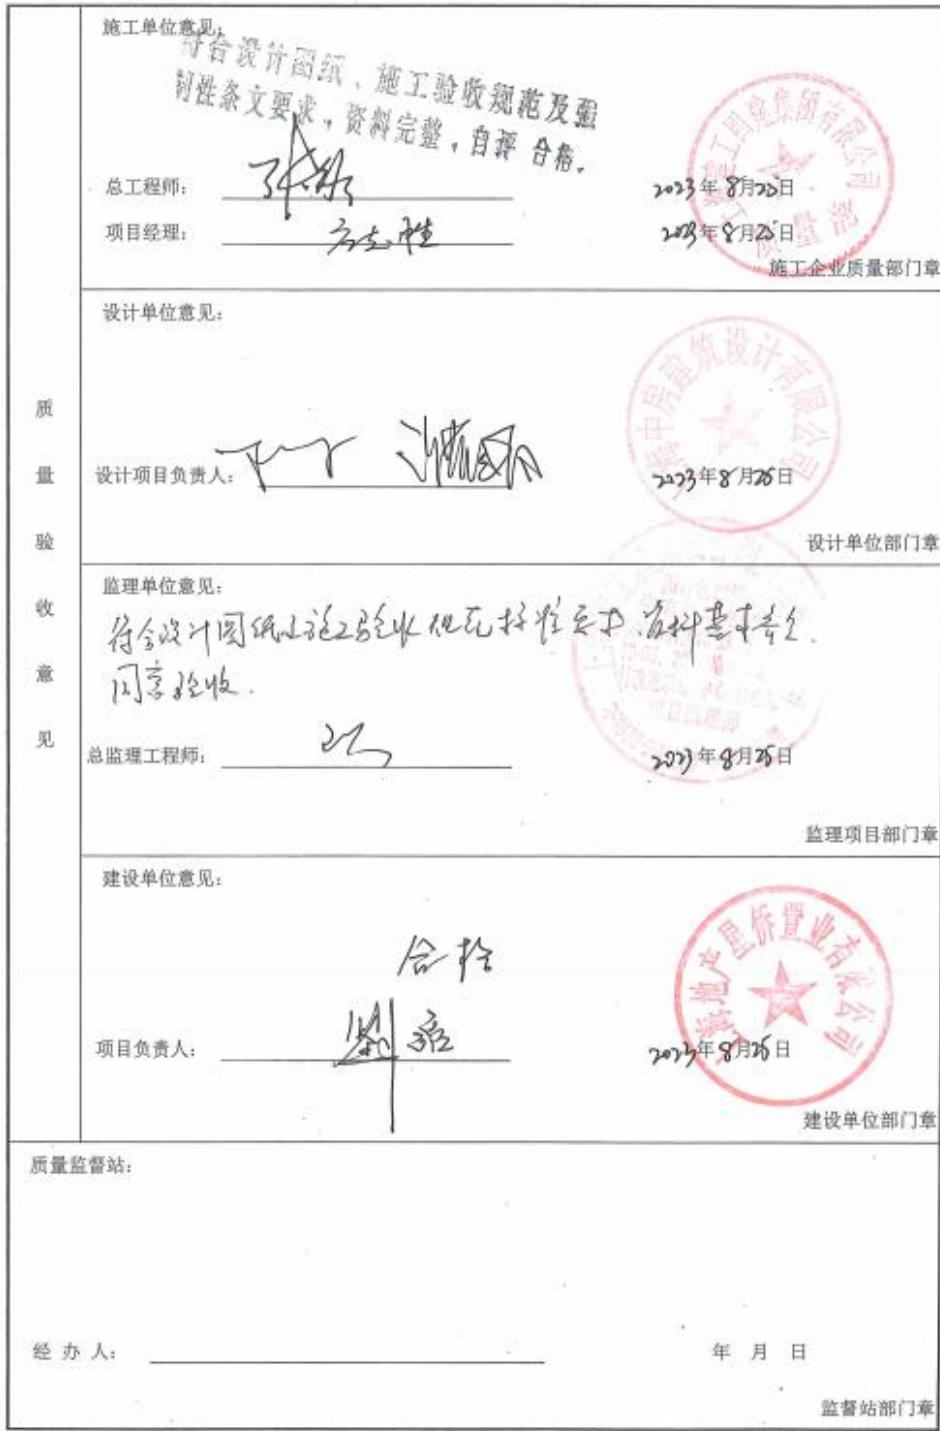 施工单位意见:
符合设计图纸、施工验收规范及强
制性条文要求,资料完整,自评 合格。
总工程师:
2023年8月25日
项目经理: 方志胜
2023年8月25日
施工企业质量部门章
设计单位意见:
中房建筑设计有限公司
设计项目负责人:
2023年8月25日
设计单位部门章
质量验收意见
监理单位意见:
符合设计图纸及施工验收规范标准要求,资料基本齐全.
同意验收.
总监理工程师:
2023年8月25日
监理项目部门章
建设单位意见:
合格
上海地产星侨置业有限公司
项目负责人:
2023年8月25日
建设单位部门章
质量监督站:
经 办 人:
年 月 日
监督站部门章